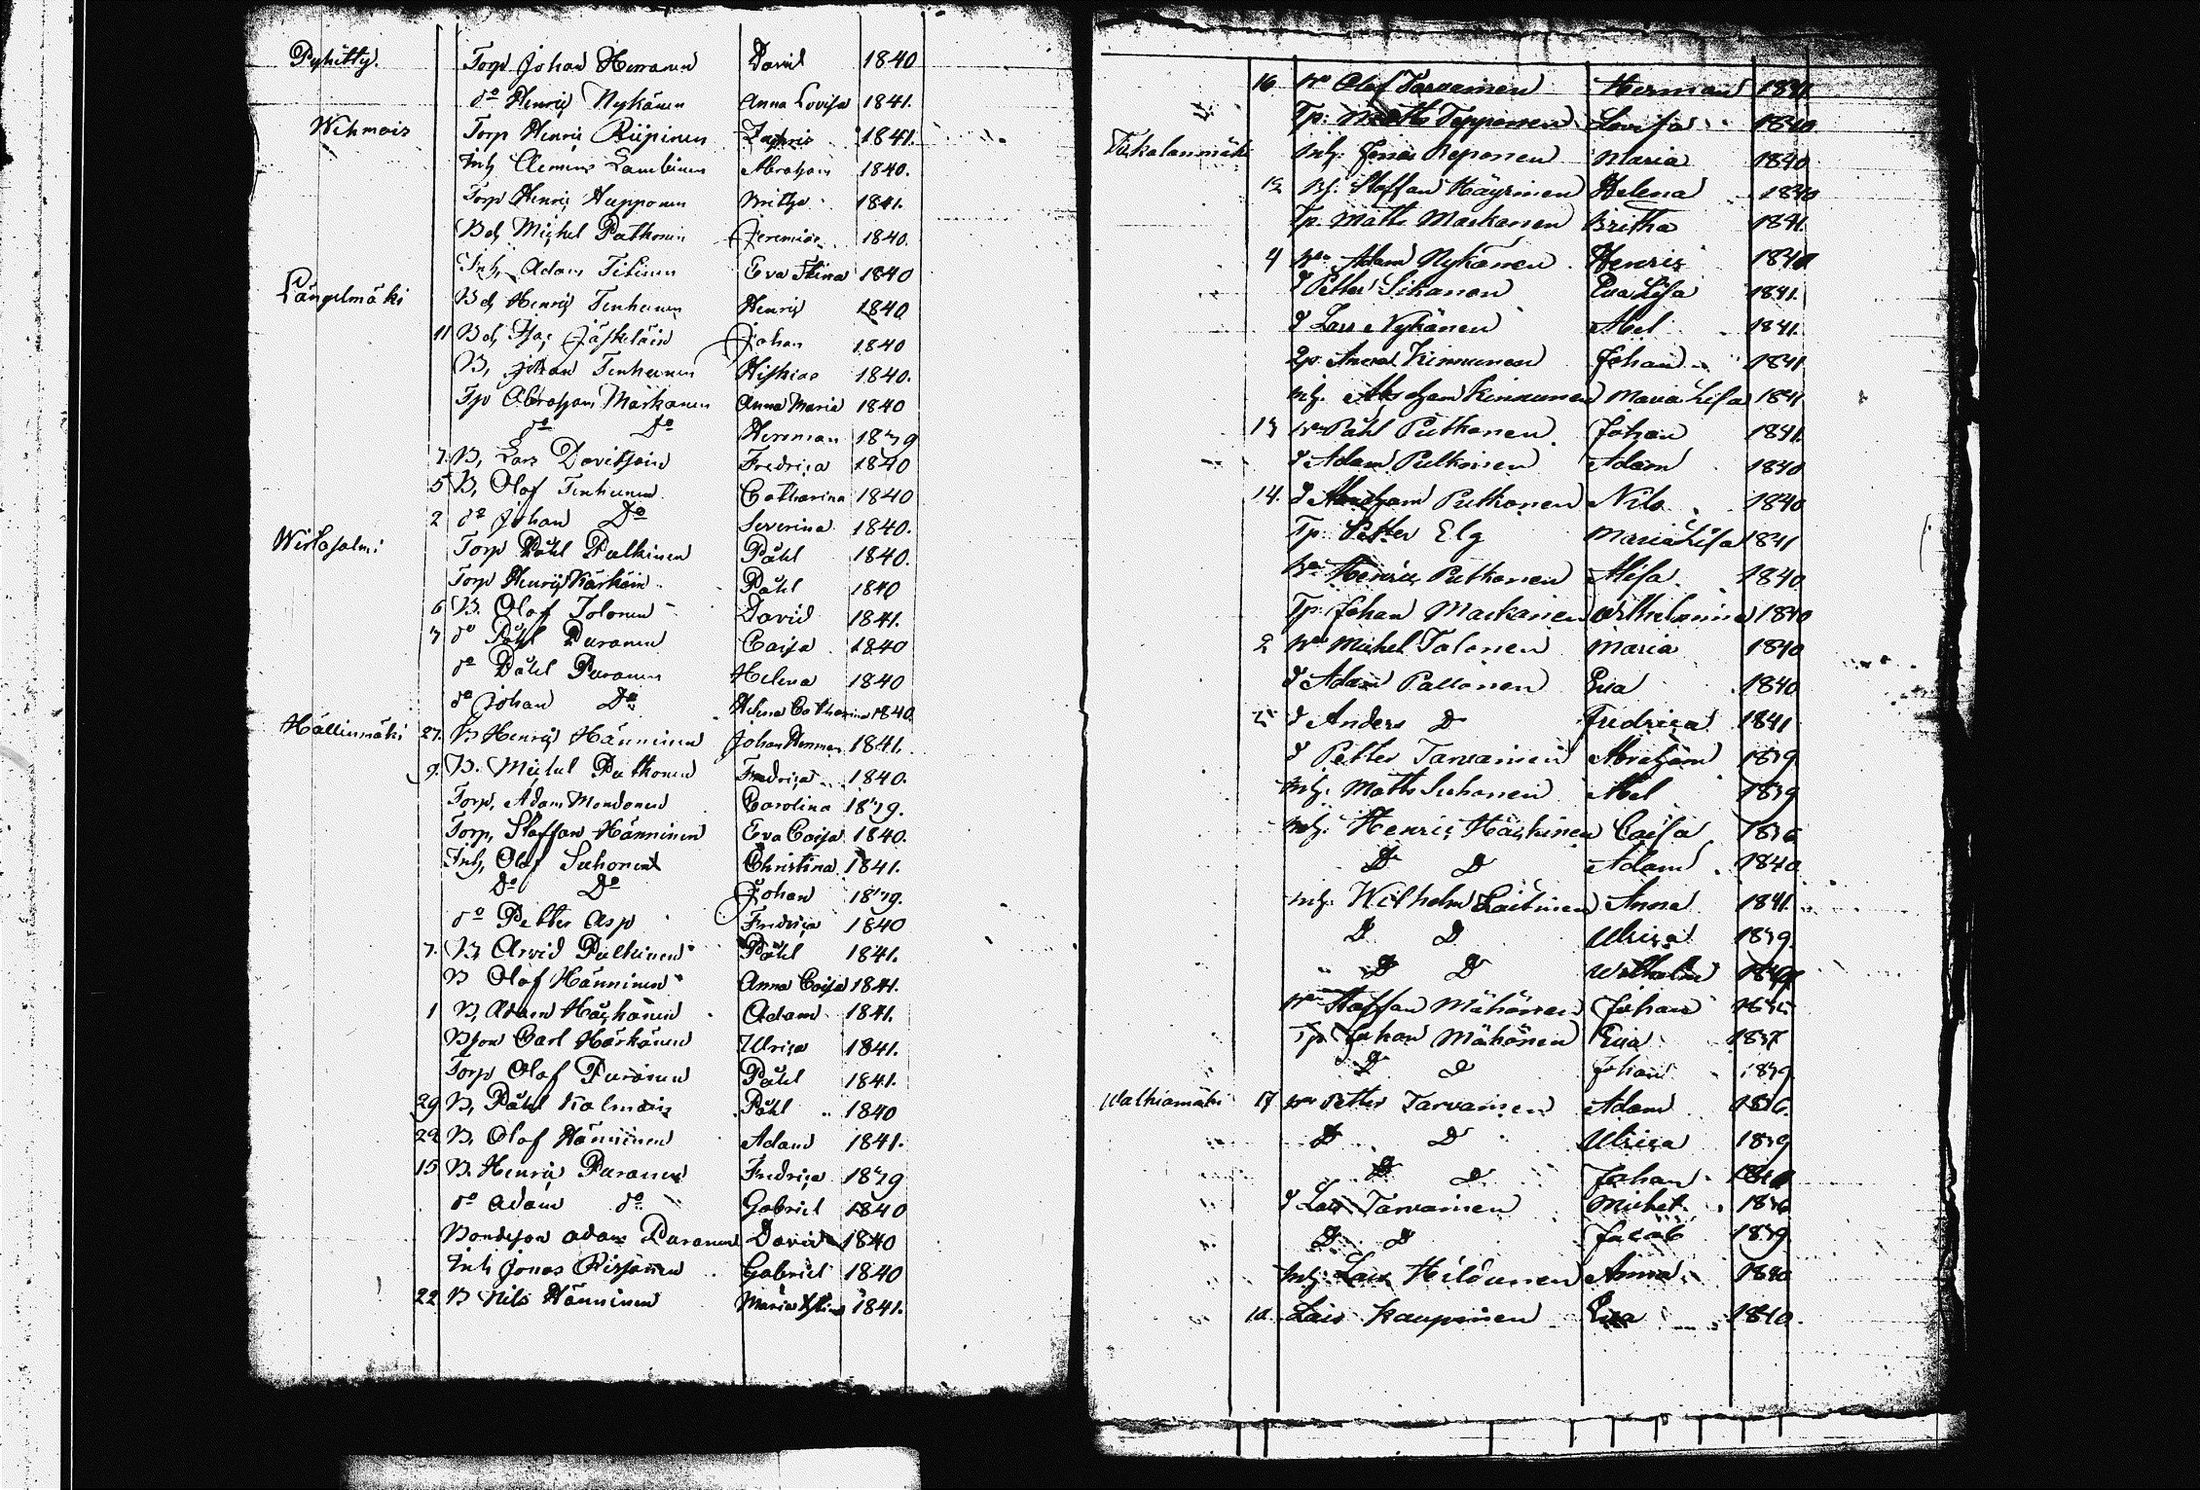 Pyhitty. Torp Johan Herranen David 1840
do Henric Nykänen Anna Lovisa 1841.
Wehmais Torp Henric Riipinen Zachris 1841.
Inh Clemens Lambinen Abraham 1840.
Torp Henric Hupponen Britha 1841.
Bd Michel Puthonen Jeremias 1840.
Inh Adam Tihinen Eva Stina 1840
Längelmäki Bd Henric Tenhunen Henric 1840
11 Bd Isac Jäskeläin Johan 1840
B, Johan Tenhunen Hiskias 1840.
Tp Abraham Markanen Anna Maria 1840
do Do Herman 1839
7. B, Lars Davitsain Fredrica 1840
5 B, Olof Tenhunen Catharina 1840
2 do Johan Do Severina 1840.
Wirtasalmi Torp Påhl Pulkinen Påhl 1840.
Torp Henric Kärkäin Påhl 1840
6 B. Olof Tolonen David 1841.
7 do Påhl Puranen Caisa 1840
do Påhl Puranen Helena 1840
do Johan Do Helena Catharina 1840.
Hällinmäki 27. B Henric Hänninen Johan Herman 1841.
9. B. Michel Puthonen Fredrica 1840.
Torp, Adam Mondonen Carolina 1839.
Torp, Staffan Hänninen Eva Caisa 1840.
Inh, Olof Suhonen Christina 1841.
Do Do Johan 1839.
do Petter Asp Fredrica 1840
7. B Arvid Pulkinen Påhl 1841.
B Olof Hänninen Anna Caisa 1841.
1 B, Adam Häckänen Adam 1841.
Bson Carl Härkänen Ulrica 1841.
Torp Olof Puranen Påhl 1841.
29 B, Påhl Kalmain Påhl 1840
22 B, Olof Hänninen Adam 1841.
15 B. Henric Puranen Fredrica 1839
do Adam do Gabriel 1840
Bondeson Adam Puranen David 1840
Inh Jonas Risanen Gabriel 1840
22 B Nils Hänninen Maria Stina 1841.
16 Bn Olof Tarvainen Herman 1841.
Tp. Matts Tepponen Lovisa 1840
Inh. Jonas Reponen Maria 1840
12 Bf. Staffan Häyrinen Helena 1840
Tp. Matts Markanen Britha 1841
4 Bn Adam Nykänen Henric 1840
d Petter Sikanen Eva Lisa 1841.
d Lars Nykänen Abel 1841.
Tp. Anders Kinnunen Johan 1841
Inh. Abraham Kinnunen Maria Lisa 1841
13 Bn Påhl Putkonen Johan 1841.
d Adam Putkonen Adam 1840
14. d Abraham Putkonen Nils 1840
Tp. Petter Elg Maria Lisa 1841
Bn Henric Putkonen Alisa 1840
Tp. Johan Markanen Wilhelmina 1840
2 Bn Michel Tolonen Maria 1840
d Adam Pallonen Eva 1840
d Anders D Fredrica 1841
d Petter Tarvainen Abraham 1839
Inh. Matts Suhonen Abel 1839
Inh. Henric Häckinen Caisa 1836
D D Adam 1840
Inh. Wilhelm Laitinen Anna 1841.
D D Ulrica 1839.
D D Wilhelm
Bn Staffan Mähönen Johan
Tp Johan Mähönen Eva 1837
D D Johan 1839
Walkiamäki 17 Bn Petter Tarvainen Adam 1836.
D D Ulrica 1839
D D Johan
d Lars Tarvainen Michel 1836
D D Jacob 1839
Inh. Lars Hiltunen Anna 1840
10 Lars Kauppinen Eva 1840.